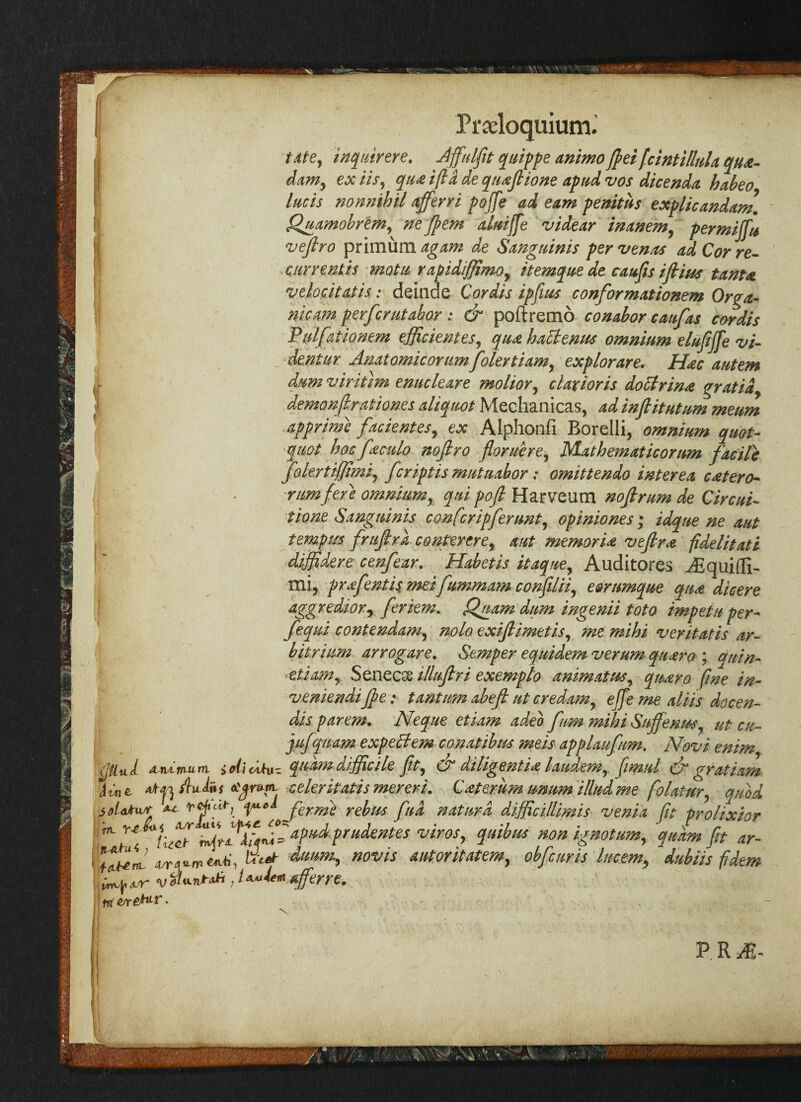 Præloquium.
tate, inquirere. Affulsit quippe animo spei scintillula quæ-
dam, ex iis, quæ istâ de quæstione apud vos dicenda habeo,
lucis nonnihil afferri posse ad eam penitùs explicandam.
Quamobrèm, ne spem aluisse videar inanem, permissu
vestro primùm agam de Sanguinis per venas ad Cor re-
currentis motu rapidissimo, itemque de causis istius tantæ
velocitatis: deinde Cordis ipsius conformationem Orga-
nicam perscrutabor: & postremò conabor causas cordis
Pulsationem efficientes, quæ hactenus omnium elusisse vi-
dentur Anatomicorum solertiam, explorare. Hæc autem
dum viritìm enucleare molior, clarioris doctrinæ gratiâ,
demonstrationes aliquot Mechanicas, ad institutum meum
apprimè facientes, ex Alphonsi Borelli, omnium quot-
quot hoc sæculo nostro floruêre, Mathematicorum facilè
solertissimi, scriptis mutuabor: omittendo interea cætero-
rum ferè omnium, qui post Harveum nostrum de Circui-
tione Sanguinis conscripserunt, opiniones; idque ne aut
tempus frustrà conterere, aut memoriæ vestræ fidelitati
diffidere censear. Habetis itaque, Auditores Æquissi-
mi, præsentis mei summam consilii, eorumque quæ dicere
aggredior, seriem. Quam dum ingenii toto impetu per-
sequi contendam, nolo existimetis, me mihi veritatis ar-
bitrium arrogare. Semper equidem verum quæro; quin-
etiam, Senecæ illustri exemplo animatus, quæro sine in-
veniendi spe: tantum abest ut credam, esse me aliis docen-
dis parem. Neque etiam adeò sum mihi Suffenus, ut cu-
jusquam expectem conatibus meis applausum. Novi enim,
quàm difficile sit, & diligentiæ laudem, simul & gratiam
celeritatis mereri. Cæterum unum illud me solatur, quòd
fermè rebus suâ naturâ difficillimis venia sit prolixior
apud prudentes viros, quibus non ignotum, quàm sit ar-
duum, novis autoritatem, obscuris lucem, dubiis fidem
afferre.
Illud animum solicitu=
dine atq; studiis ægrum
solatur ac reficit, quod
in rebus arduis ipse co=
natus, licet infra digni=
tatem argumenti, licet
impar voluntati, laudem
meretur.
PRÆ-